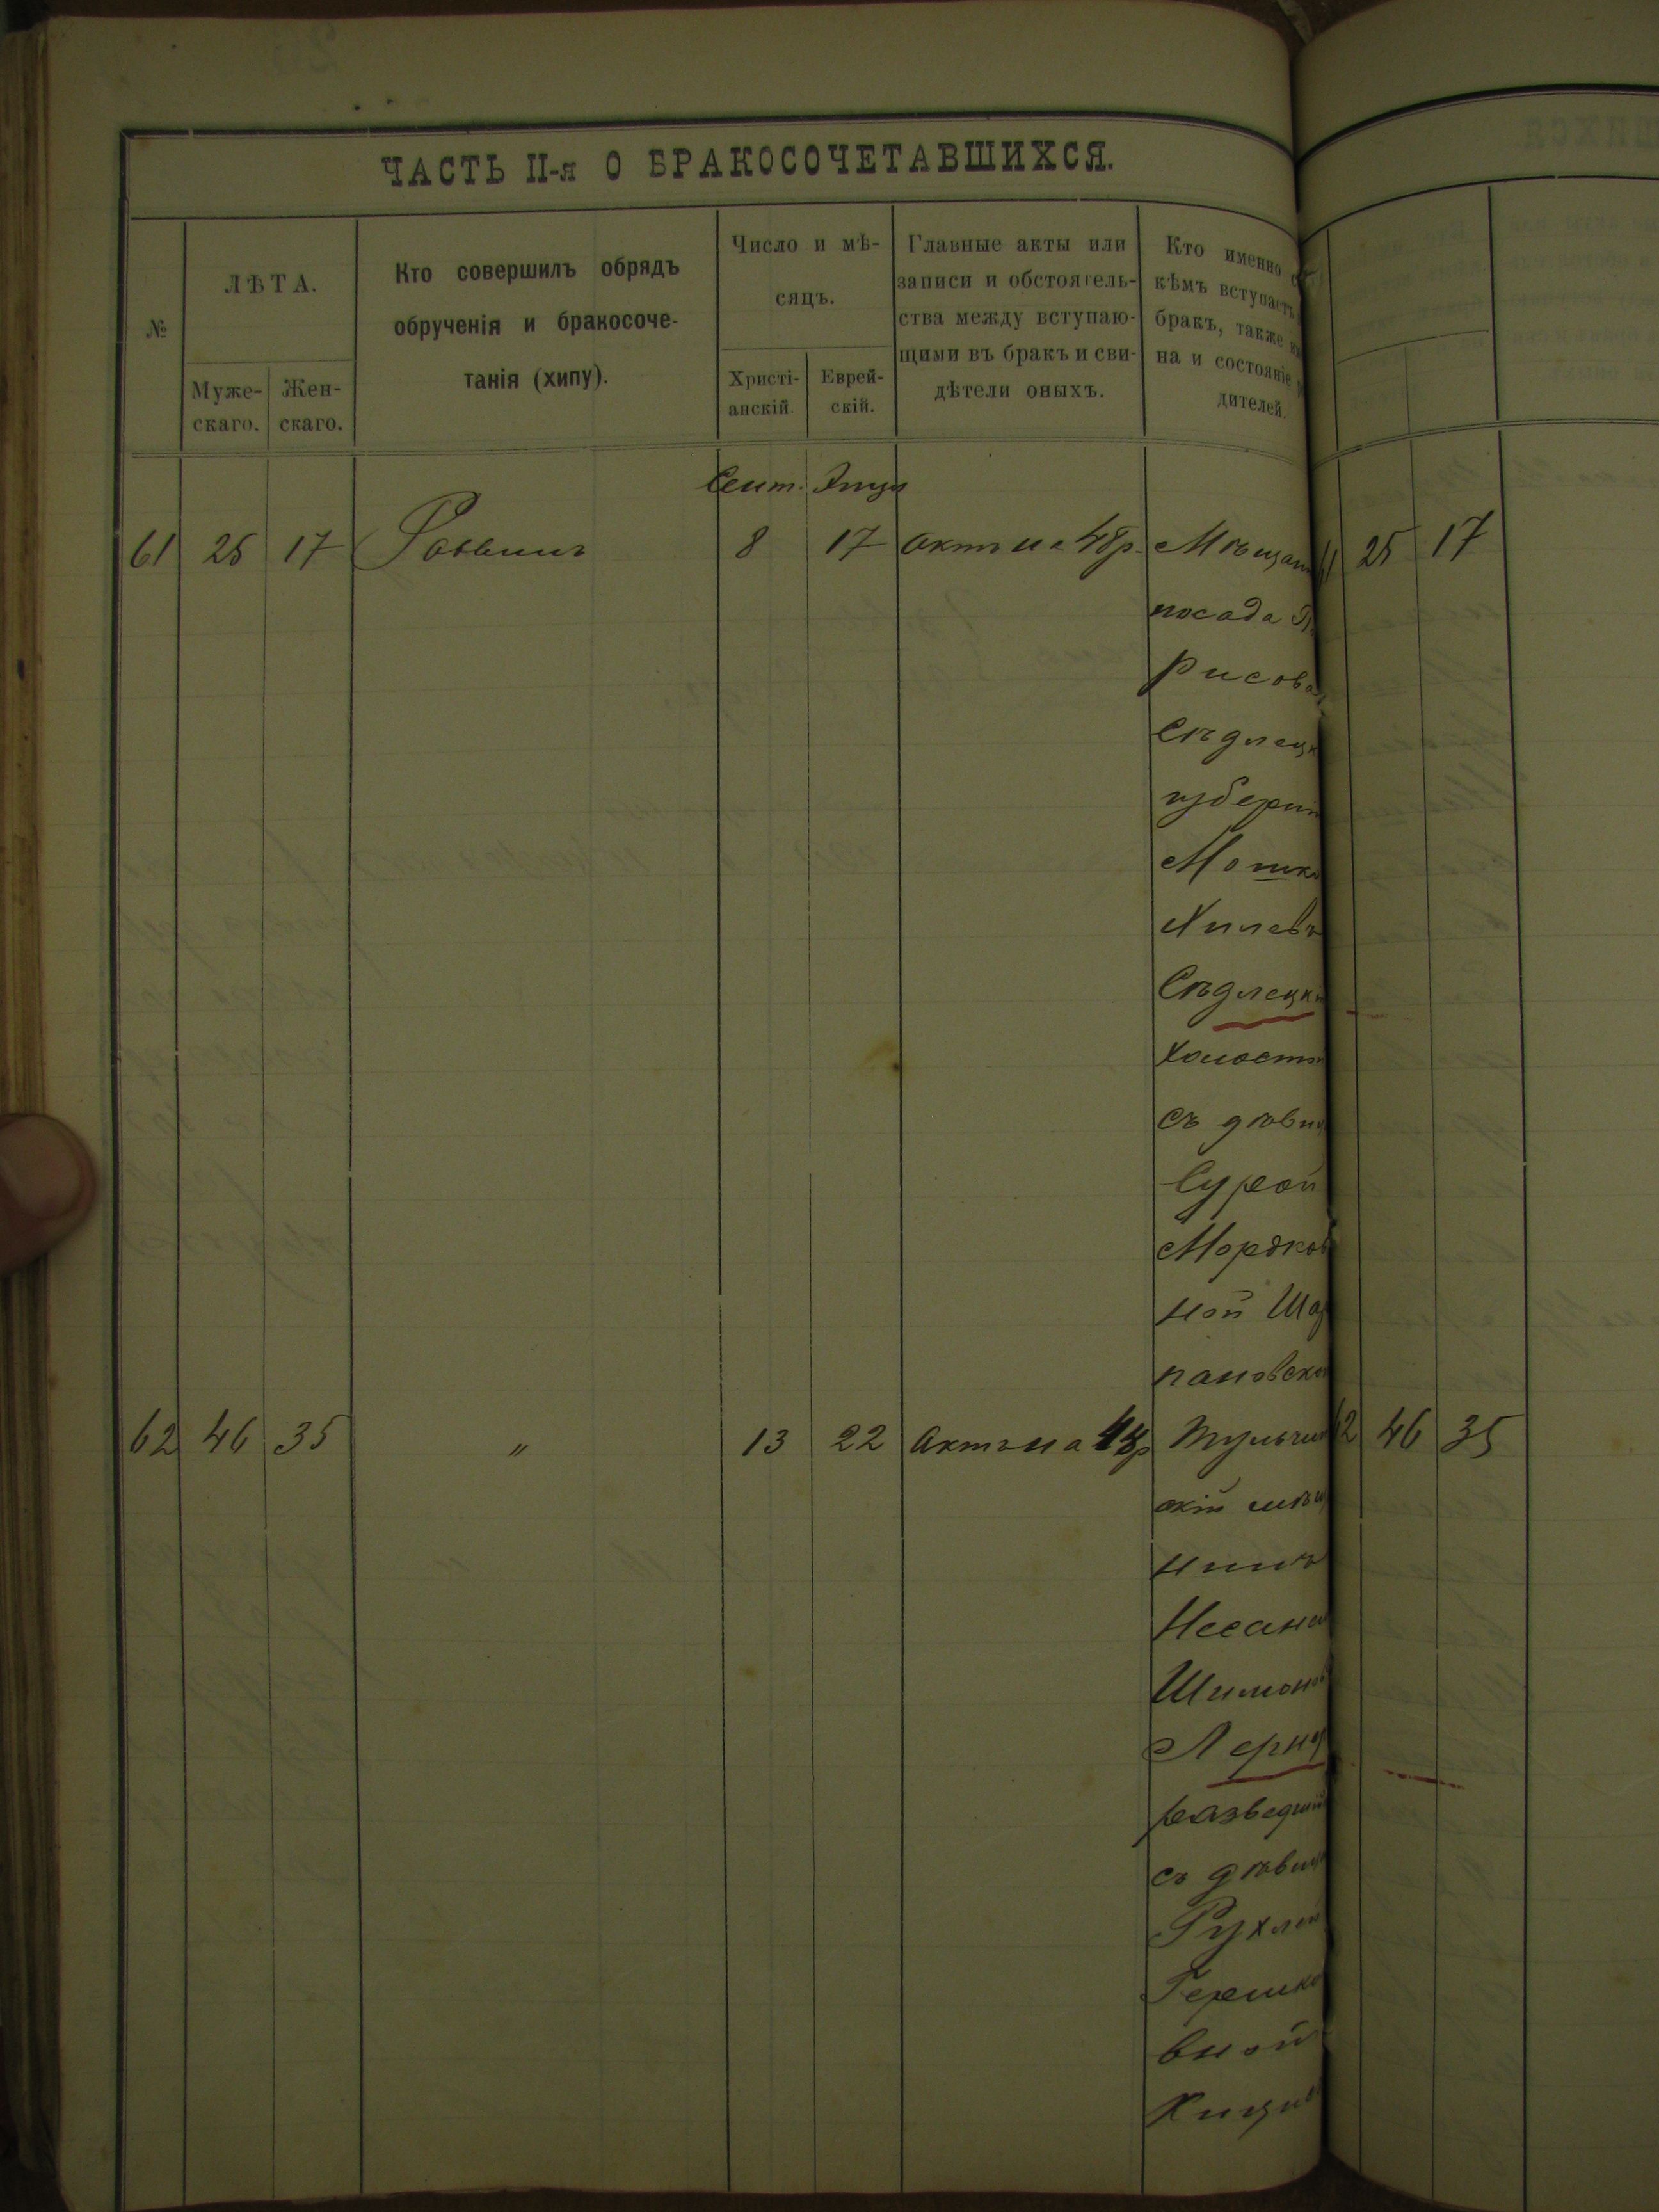 ЧАСТЬ II-я О БРАКОСОЧЕТАВШИХСЯ.
№
ЛѢТА.
Муже-
скаго.
Жен-
скаго.
Кто совершилъ обрядъ
обрученія и бракосоче-
танія (хипу).
Число и мѣ-
сяцъ.
Христі-
анскій.
Еврей-
скій.
Главные акты или
записи и обстоятель-
ства между вступаю-
щими въ бракъ и сви-
дѣтели оныхъ.
Кто именно съ
кѣмъ вступаетъ
бракъ, также им
на и состояніе р
дителей.
Сент.
61 25 17 Раввинъ 8 17 актъ на 48р. Мѣщан
посада
рисова
Сѣдлецк
губерніи
Мошко
Хилевъ
Сѣдлецкі
холостой
съ дѣвиц
Сурой
Мордков
ной Шар
пановской
62 46 35 " 13 22 актъ на 48р Тульчин
скій мѣщ
нинъ
Нссана
Шимонов
Лернер
разведшій
съ дѣвиц
Рухлей
Гершко
вной
61 25 17
62 46 35